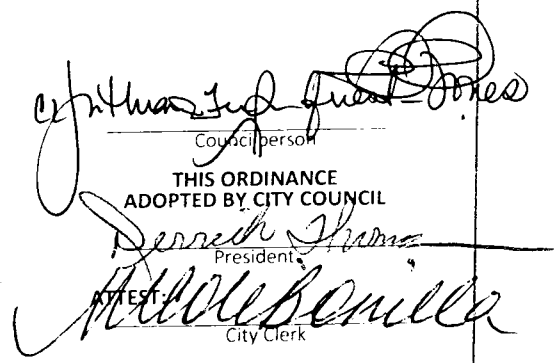 Cynthia Jones
Councilperson
THIS ORDINANCE
ADOPTED BY CITY COUNCIL
Derrick Thomas
President
ATTEST:
Nicole Bonilla
City Clerk